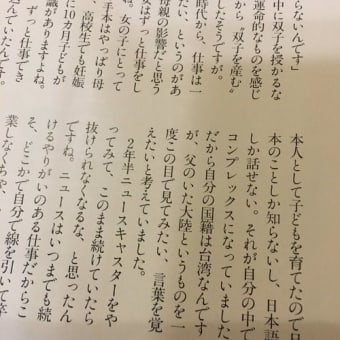 らないんです」
中に双子を授かるな
運命的なものを感じ
したそうですが。
から“双子を産む。
時代から、仕事は一
たい、というのがあ
母親の影響だと思う
女はずっと仕事をし
ね。女の子にとって
手本はやっぱり母
、高校生でも妊娠
10カ月子どもが
識がありますよね。
ずっと仕事でき
込んでいたんです。
本人として子どもを育てたので日
本のことしか知らないし、日本語
しか話せない。それが自分の中で
コンプレックスになっていました
だから自分の国籍は台湾なんです
が、父のいた大陸というものを一
度この目で見てみたい、言葉を覚
えたいと考えていました。
2年半ニュースキャスターをや
ってみて、このまま続けていたら
抜けられなくなるな、と思ったん
ですね。ニュースはいつまでも続
けるやりがいのある仕事だからこ
そ、どこかで自分で線を引いて卒
業しなくちゃ、